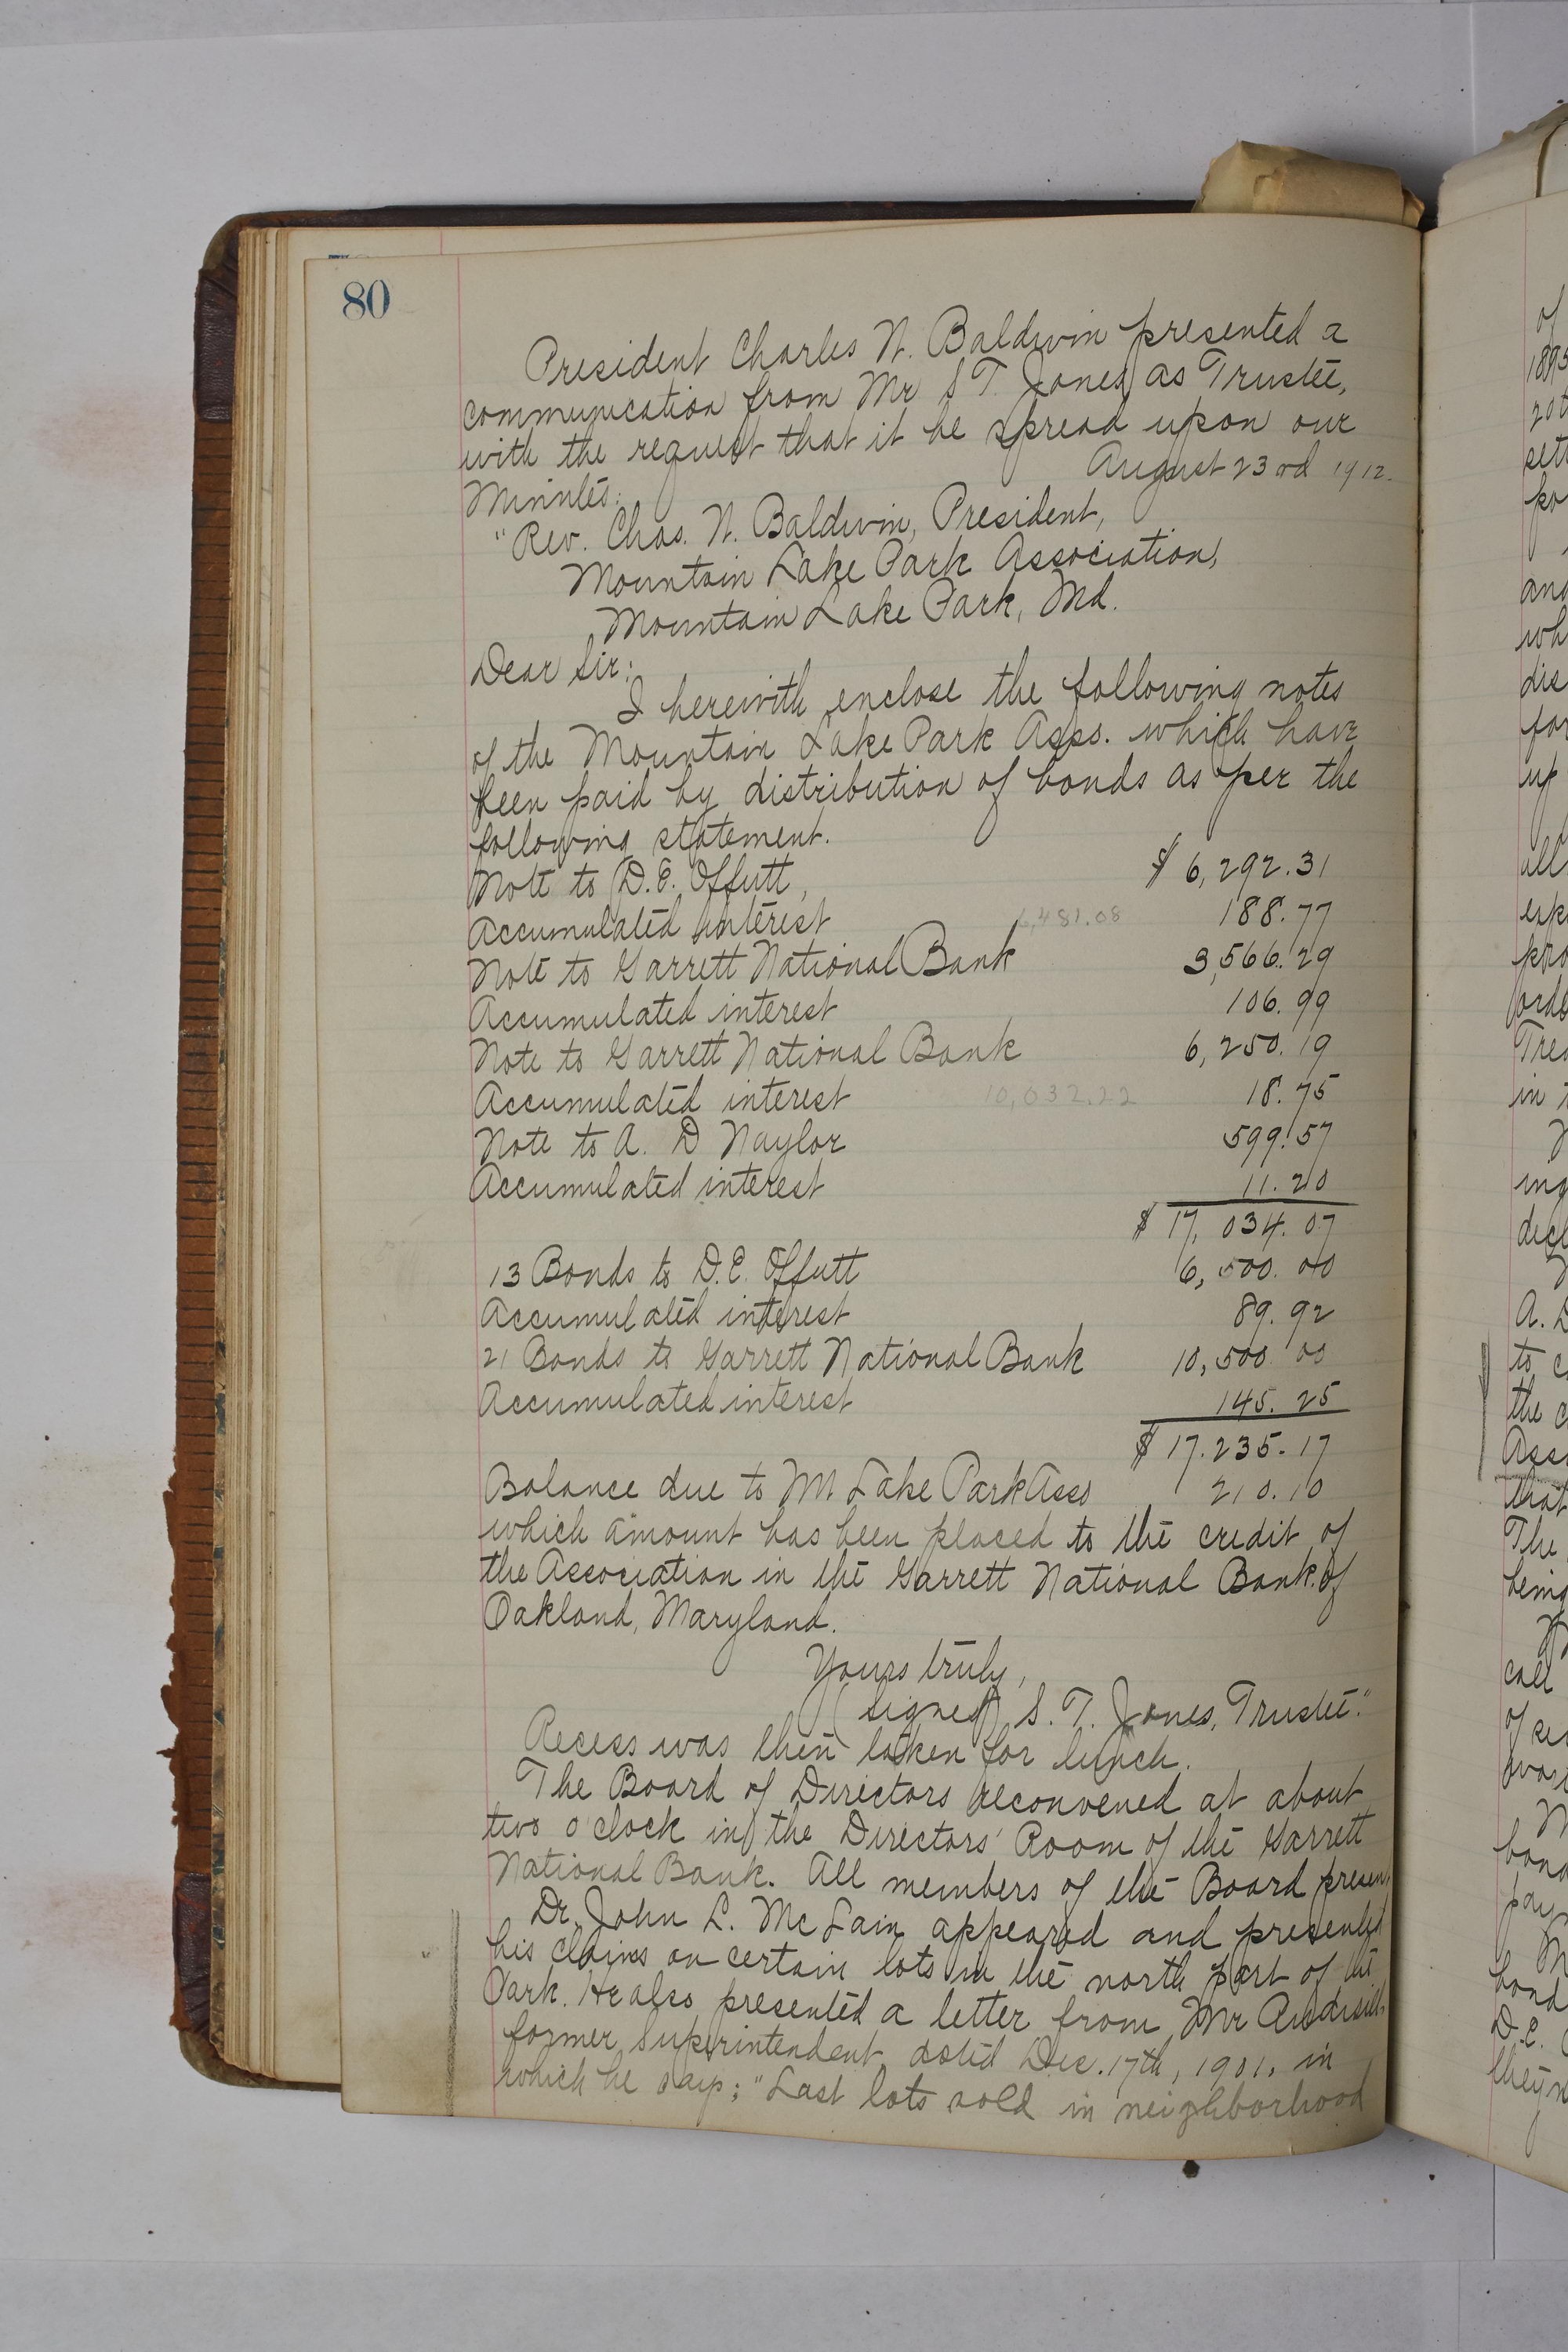 80
President Charles W. Baldwin presented a
communication from Mr S T. Jones, as Trustee,
with the request that it be spread upon our
Minutes.
August 23rd 1912.
"Rev. Chas. W. Baldwin, President,
Mountain Lake Park Association,
Mountain Lake Park, Md.
Dear Sir:
I herewith enclose the following notes
of the Mountain Lake Park Asss. which have
been paid by distribution of bonds as per the
following statement.
Note to D.E. Offutt, $ 6,292.31
Accumulated interest 6,481.08 188.77
Note to Garrett National Bank 3,566.29
Accumulated interest 106.99
Note to Garrett National Bank 6,250.19
Accumulated interest 10,032.22 18.75
Note to A. D Naylor 599.57
Accumulated interest 11.20
$ 17,034.07
13 Bonds to D.E. Offutt 6,500.00
Accumulated interest 89.92
21 Bonds to Garrett National Bank 10,500 00
Accumulated interest 145.25
$ 17.235.17
Balance due to Mt Lake Park Asso 210.10
which amount has been placed to the credit of
the Association in the Garrett National Bank of
Oakland, Maryland.
Yours truly,
(signed) S. T. Jones, Trustee."
Recess was then taken for lunch.
The Board of Directors reconvened at about
two o'clock in the Directors' Room of the Garrett
National Bank. All members of the Board present
Dr. John L. McLain appeared and presented
his claims on certain lots in the north part of the
Park. He also presented a letter from Mr
former Superintendent dated Dec. 17th, 1901, in
which he says; "Last lots sold in neighborhood
of
1895
20t
sett
po
and
wh
dis
for
up
all
exp
pro
orde
Trea
in
ing
decl
A. D
to c
the c
Ass
that
The
being
call
of se
bond
pay
M
bond
D.E.
they